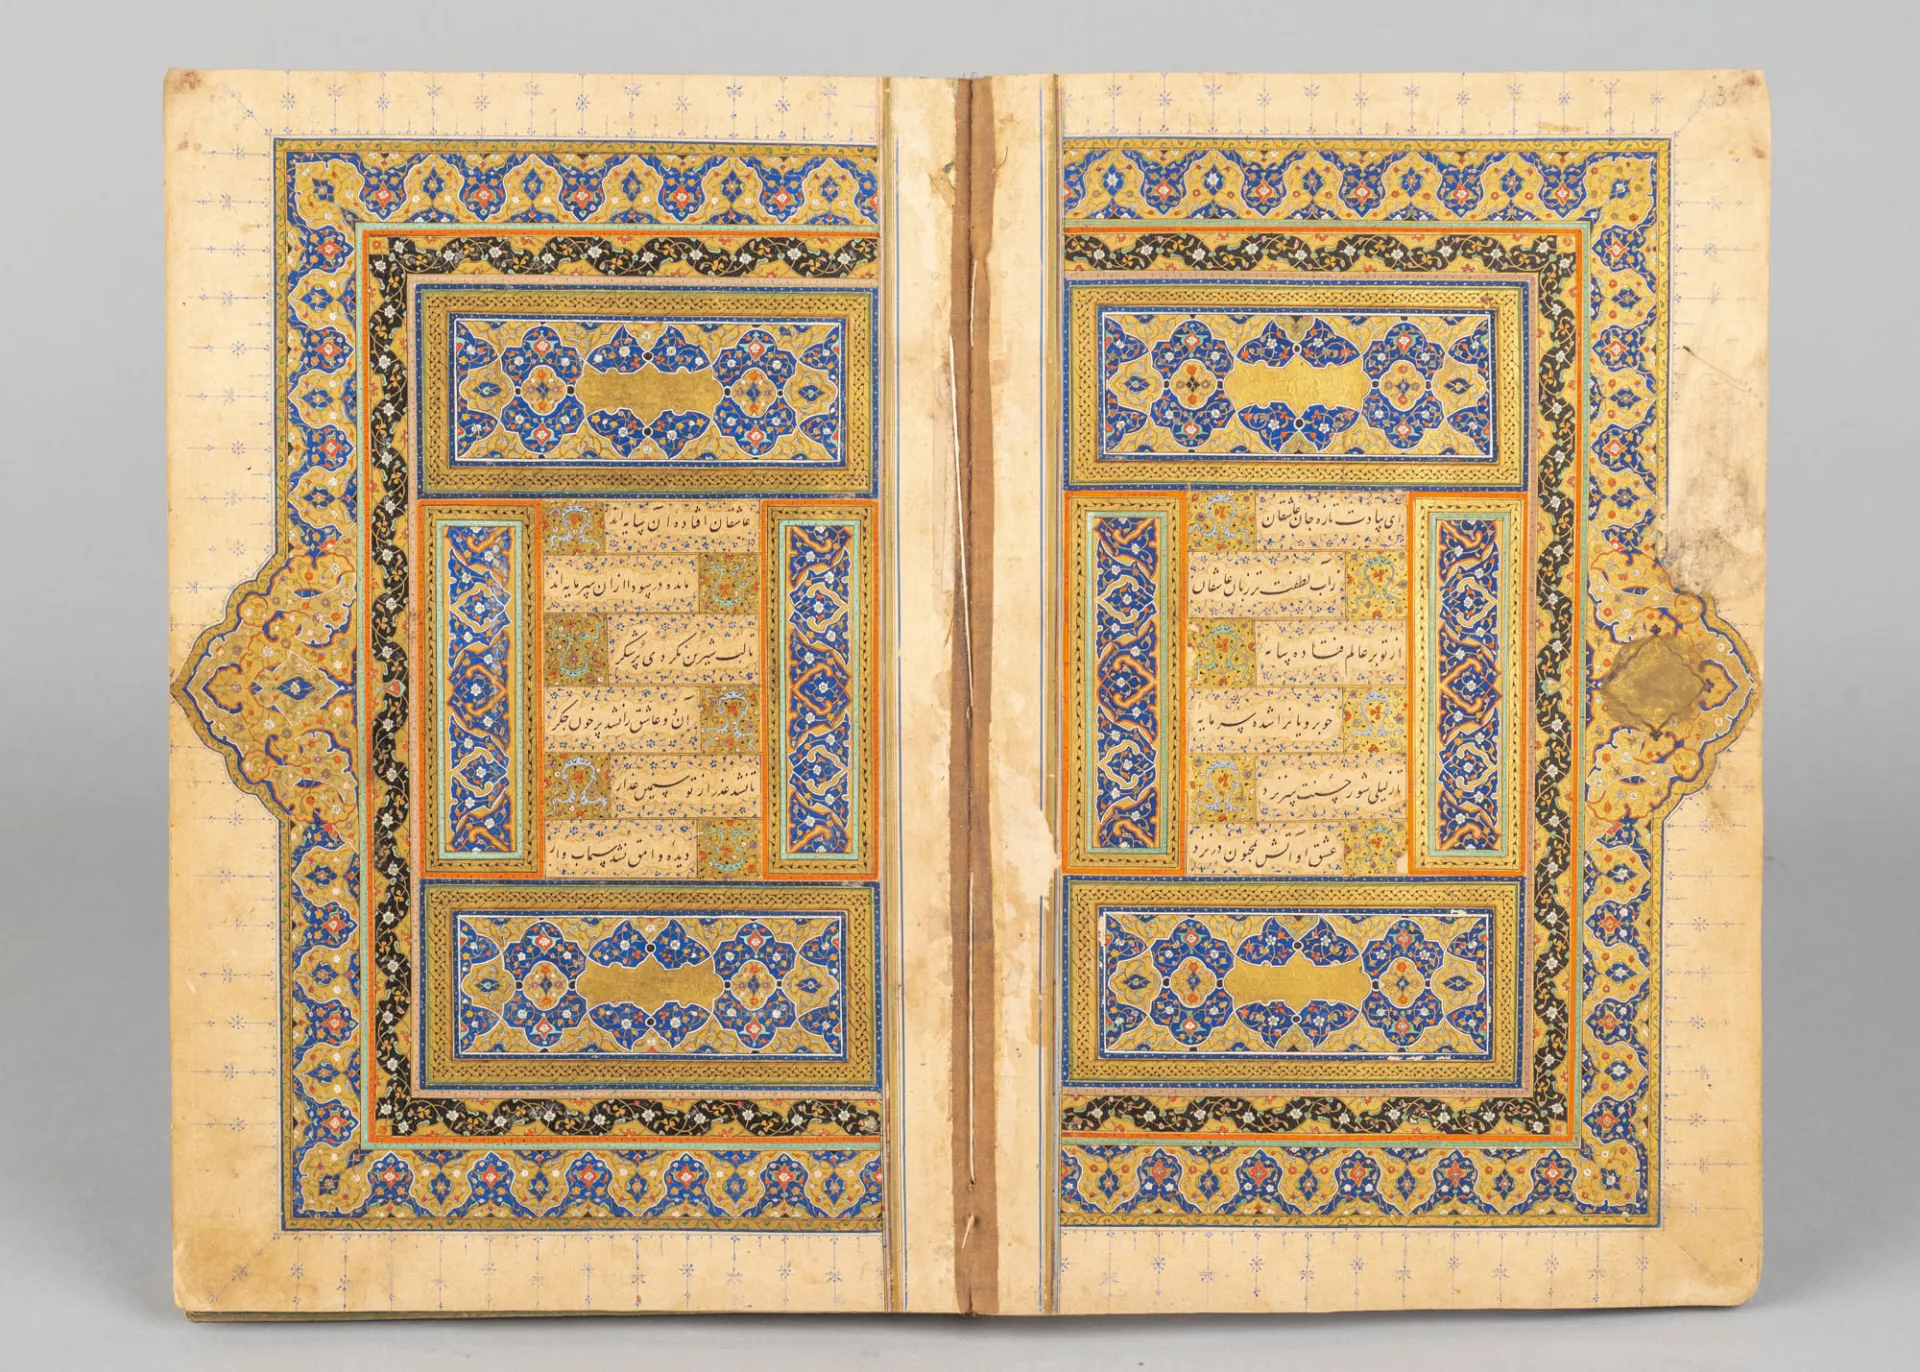 ای بیادت تازه جان عاشقان
زآب لطفت تر زبان عاشقان
از تو بر عالم فتاده سایه
خوبرویانرا شده سرمایه
تا ز لیلی شور حسنت سر نزد
عشق او آتش بمجنون در نزد
عاشقان افتاده آن سایه اند
مانده در سودا ازان سرمایه اند
تا لب شیرین نکردی پرشکر
آن دو عاشق را نشد پرخون جگر
تا نشد عذرا ز تو سیمین عذار
دیده وامق نشد سیماب وار